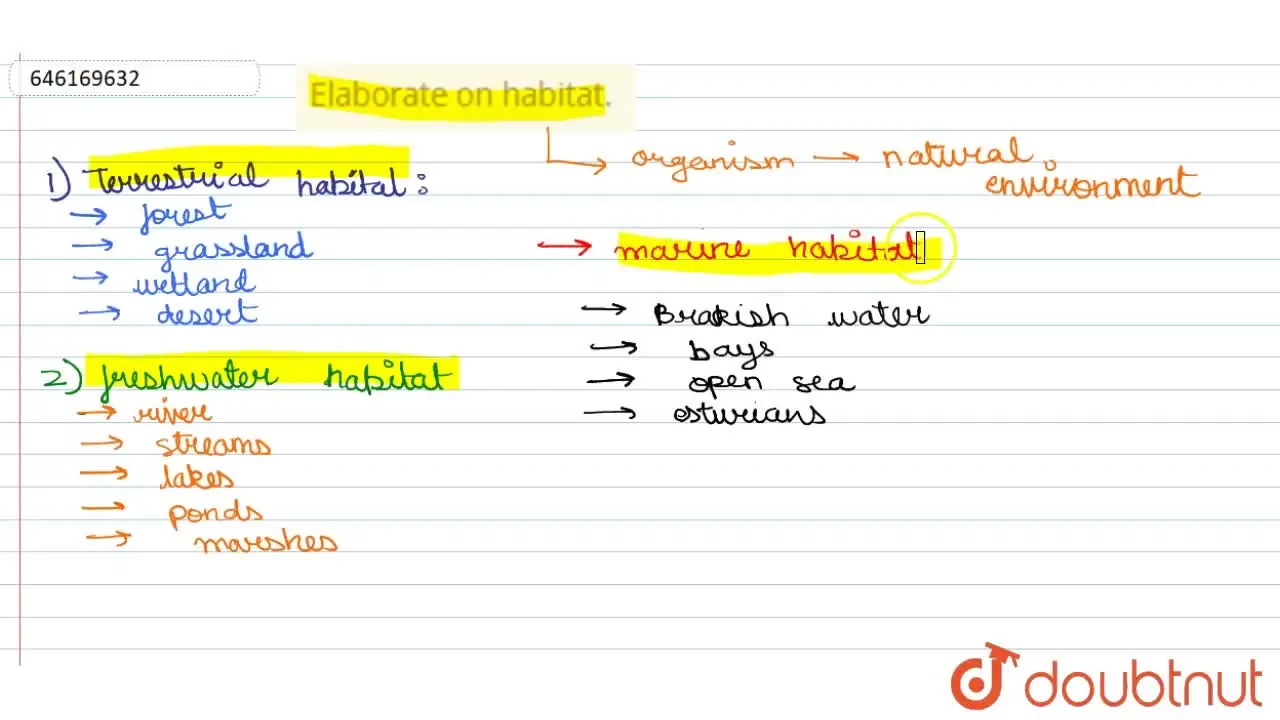 646169632
Elaborate on habitat.
organism → natural
environment
1) Terrestrial habital:
→ forest
→ grassland
→ wetland
→ desert
2) freshwater habitat
→ river
→ streams
→ lakes
→ ponds
→ marshes
→ marine habitat
→ Brakish water
→ bays
→ open sea
→ esturians
doubtnut